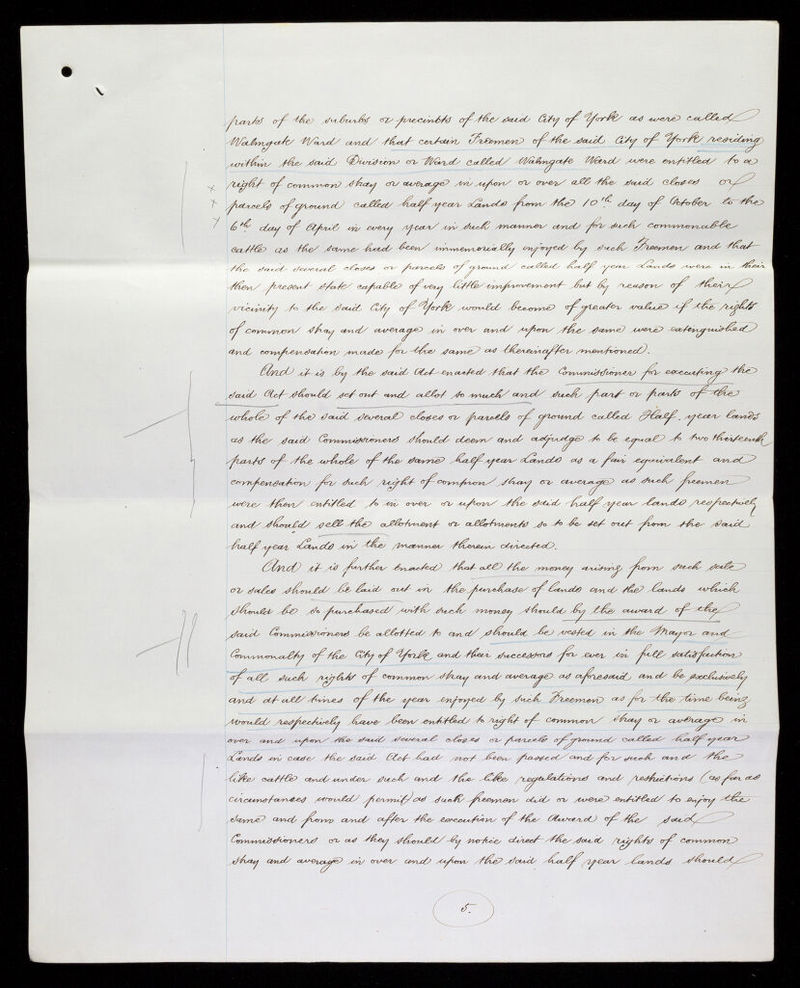 parts of the suburbs or precincts of the said City of York as were called
Walmgate Ward and that certain Freemen of the said City of York residing
within the said Division or Ward called Walmgate Ward were entitled to a
right of common stray or average in upon or over all the said closes or
parcels of ground called half year Lands from the 10th day of October to the
6th day of April in every year in such manner and for such commonable
cattle as the same had been immemorially enjoyed by such Freemen and that
the said several closes or parcels of ground called half year Lands were in their
then present state capable of very little improvement but by reason of their
vicinity to the said City of York would become of greater value if the rights
of common stray and average in over and upon the same were extinguished
and compensation made for the same as thereinafter mentioned.
And it is by the said Act enacted that the Commissioner for executing the
said Act should set out and allot so much and such part or parts of the
whole of the said several closes or parcels of ground called Half-year lands
as the said Commissioners should deem and adjudge to be equal to two thirteenth
parts of the whole of the same half year Lands as a fair equivalent and
compensation for such right of common stray or average as such freemen
were then entitled to in over or upon the said half year lands respectively
and should sell the allotment or allotments so to be set out from the said
half year Lands in the manner therein directed.
And it is further enacted that all the money arising from such sale
or sales should be laid out in the purchase of lands and the lands which
should be so purchased with such money should by the award of the
said Commissioners be allotted to and should be vested in the Mayor and
Commonalty of the City of York and their successors for ever in full satisfaction
of all such rights of common stray and average as aforesaid and be exclusively
and at all times of the year enjoyed by such Freemen as for the time being
would respectively have been entitled to right of common stray or average in
over and upon the said several closes or parcels of ground called half year
Lands in case the said Act had not been passed and for such and the
like cattle and under such and the like regulations and restrictions (as far as
circumstances would permit) as such freemen did or were entitled to enjoy the
same and from and after the execution of the Award of the said
Commissioners or as they should by notice direct the said rights of common
stray and average in over and upon the said half year lands should
5.